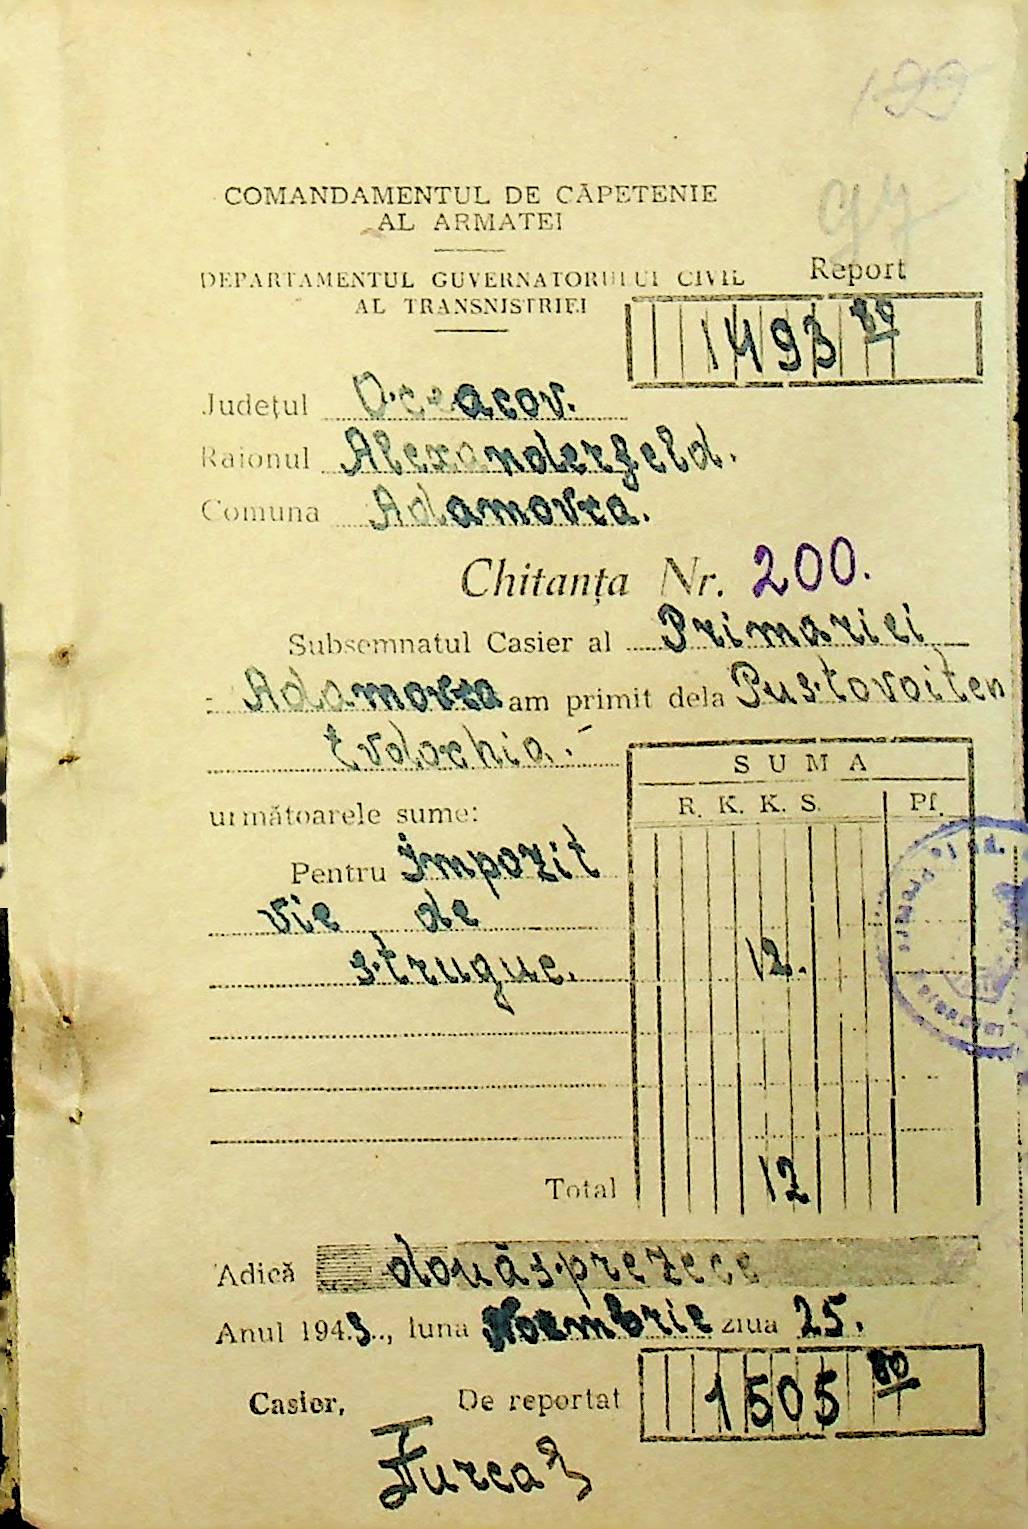 199
97
COMANDAMENTUL DE CĂPETENIE
AL ARMATEI
DEPARTAMENTUL GUVERNATORULUI CIVIL
AL TRANSNISTRIEI
Report
1493 80
Județul Oceacov.
Raionul Alexanderfeld.
Comuna Adamovca.
Chitanța Nr. 200.
Subsemnatul Casier al Primariei
Adamovca am primit dela Pustovoiten
Evdochia.
SUMA
R. K. K. S. Pf.
următoarele sume:
Pentru impozit
vie de
strugue. 12.
Total 12
Adică douăsprezece
Anul 1943., luna Noembrie ziua 25.
Casier, De reportat 1505 80